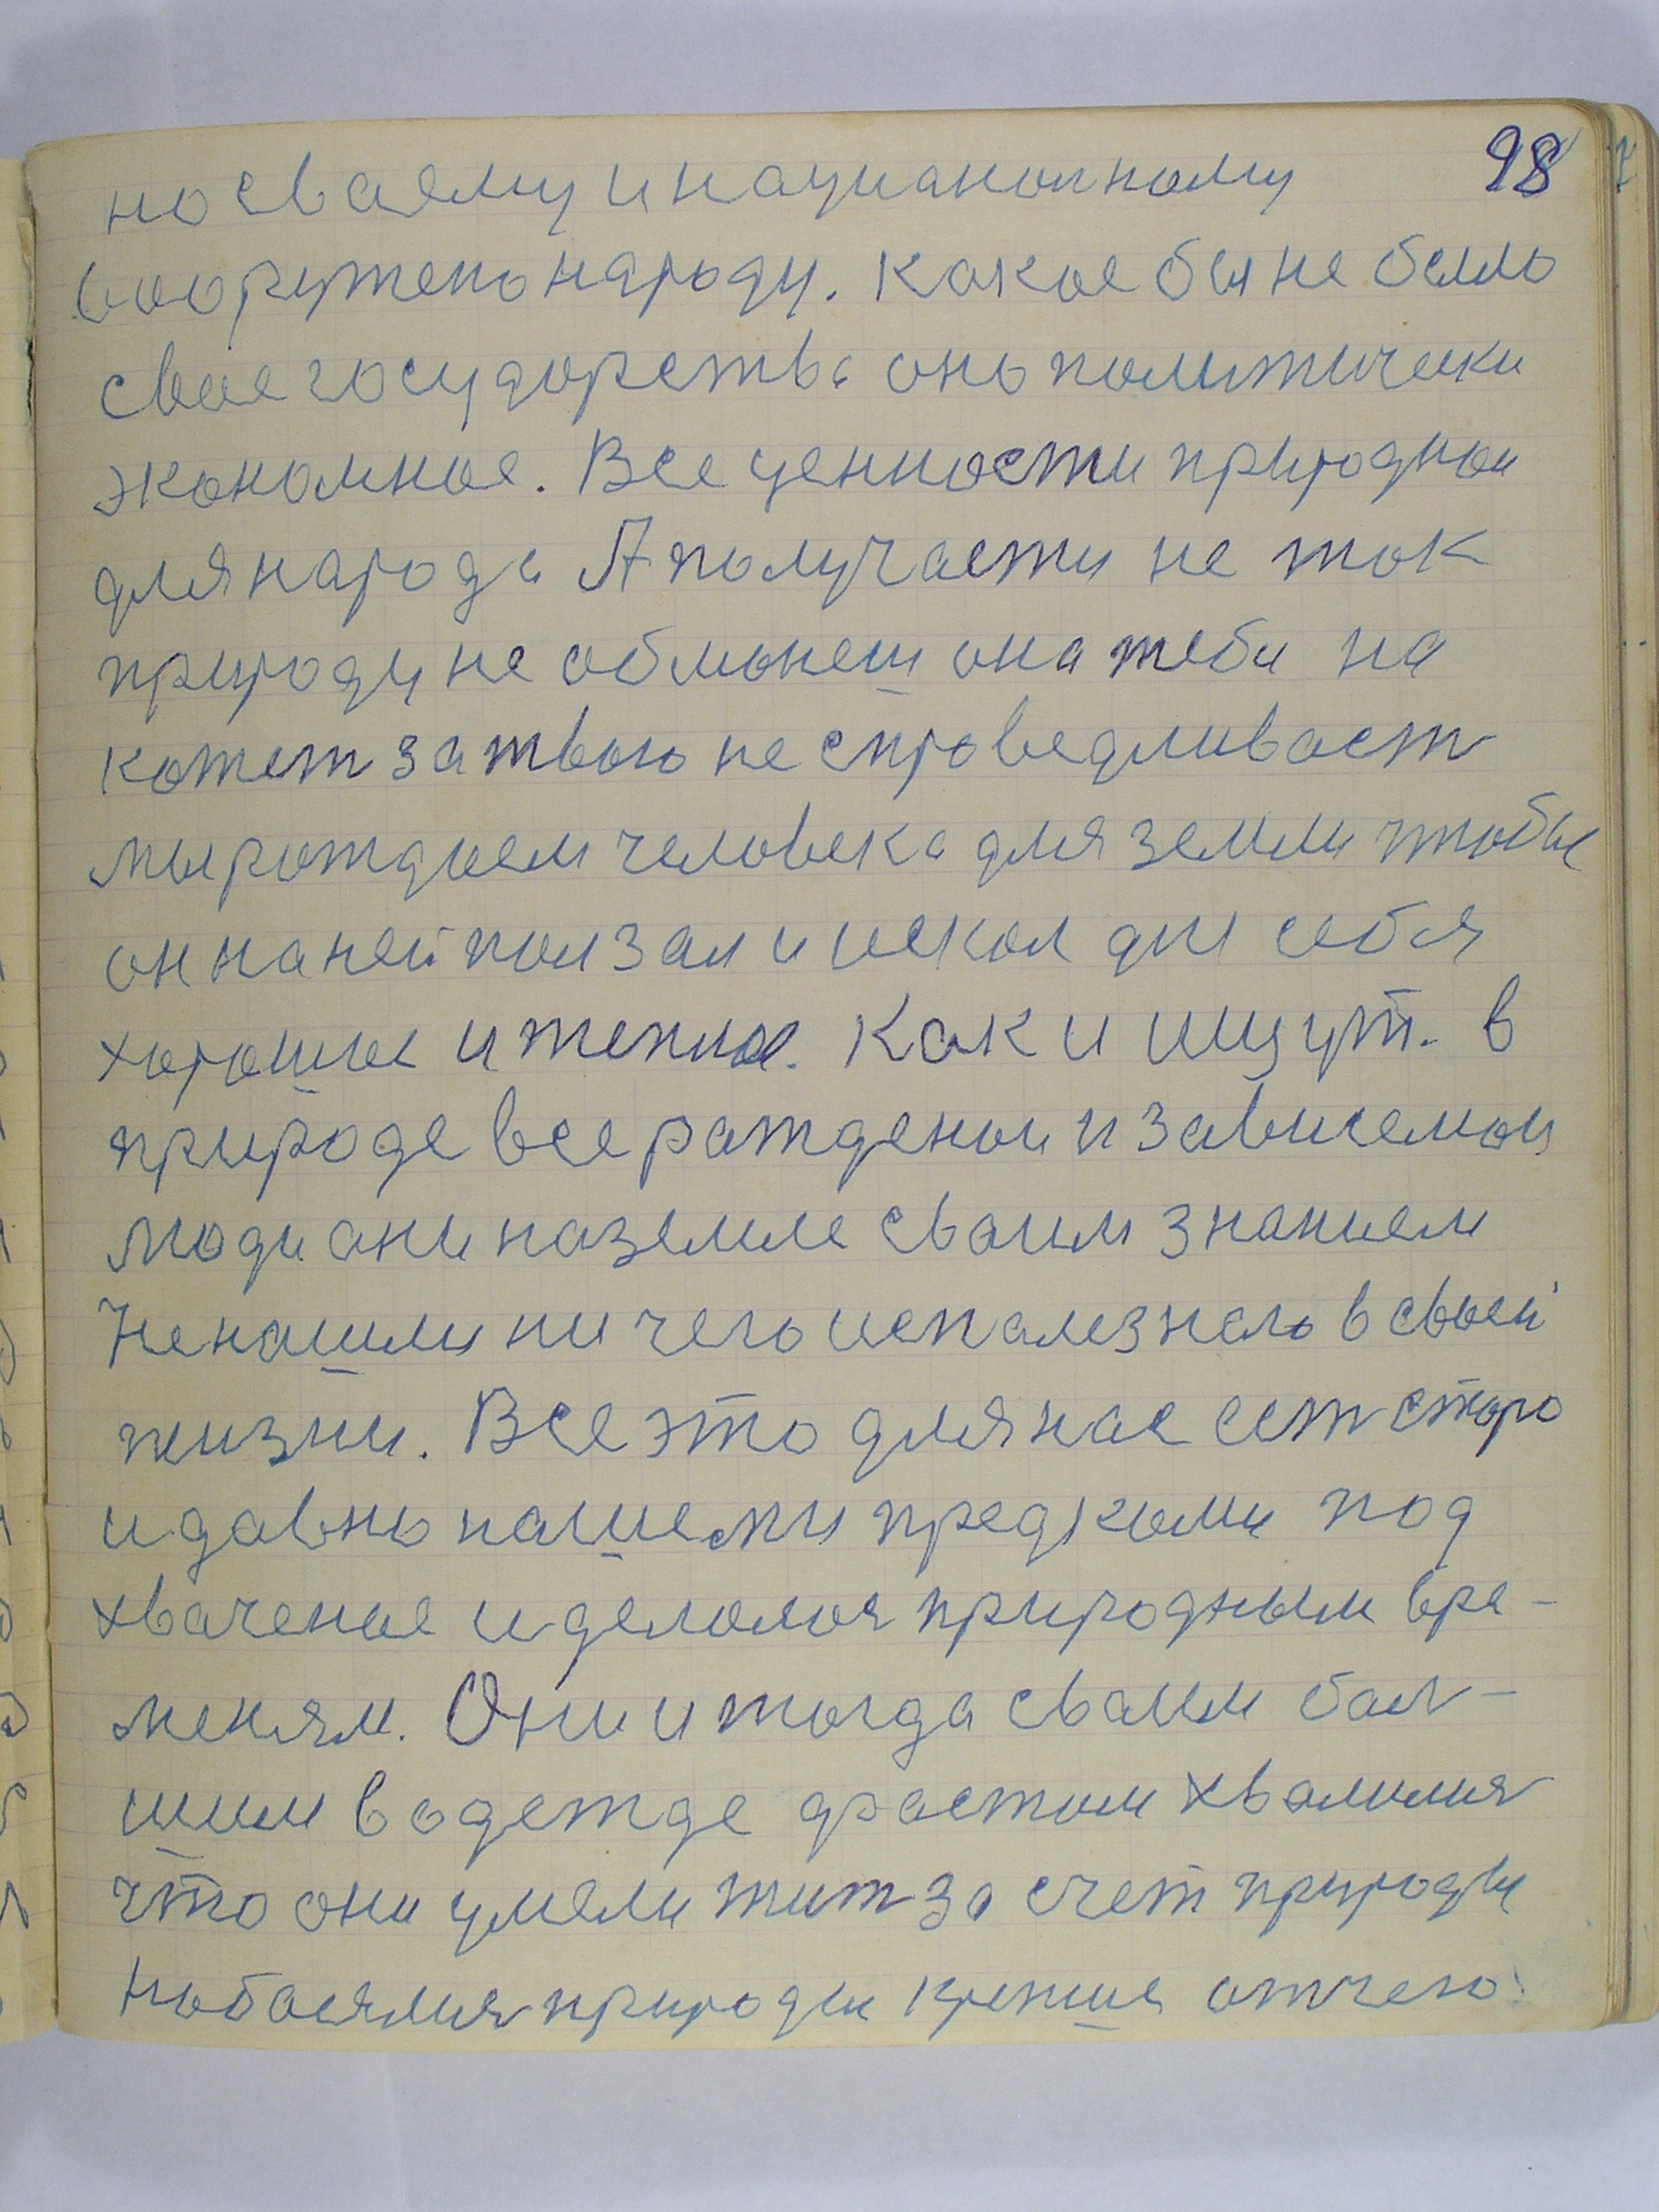 98
но сваему и национолному
вооружено народу. Какое бы не было
свое государства оно политически
экономное. Все ценности природнои
для народа А получаети не так
природу не обманеш она тебя на
кажет за твою не справедливаст
мы рождаем человека для земли чтобы
он на ней ползал и искал для себя
хорошие и теплое. Как и ищут. в
природе все рожденои и зависемои
люди они на земле сваим знанием
Не нашли ни чего исползнаго в своей
жизни. Все это для нас ест старо
и давно нашеми предками под
хваченые и делолоя природным вре-
меням. Они и тогда сваим бол-
шим в одежде фрастом хвалилия
что они умели жит за счет природы
Но боялия природы крепше отчего